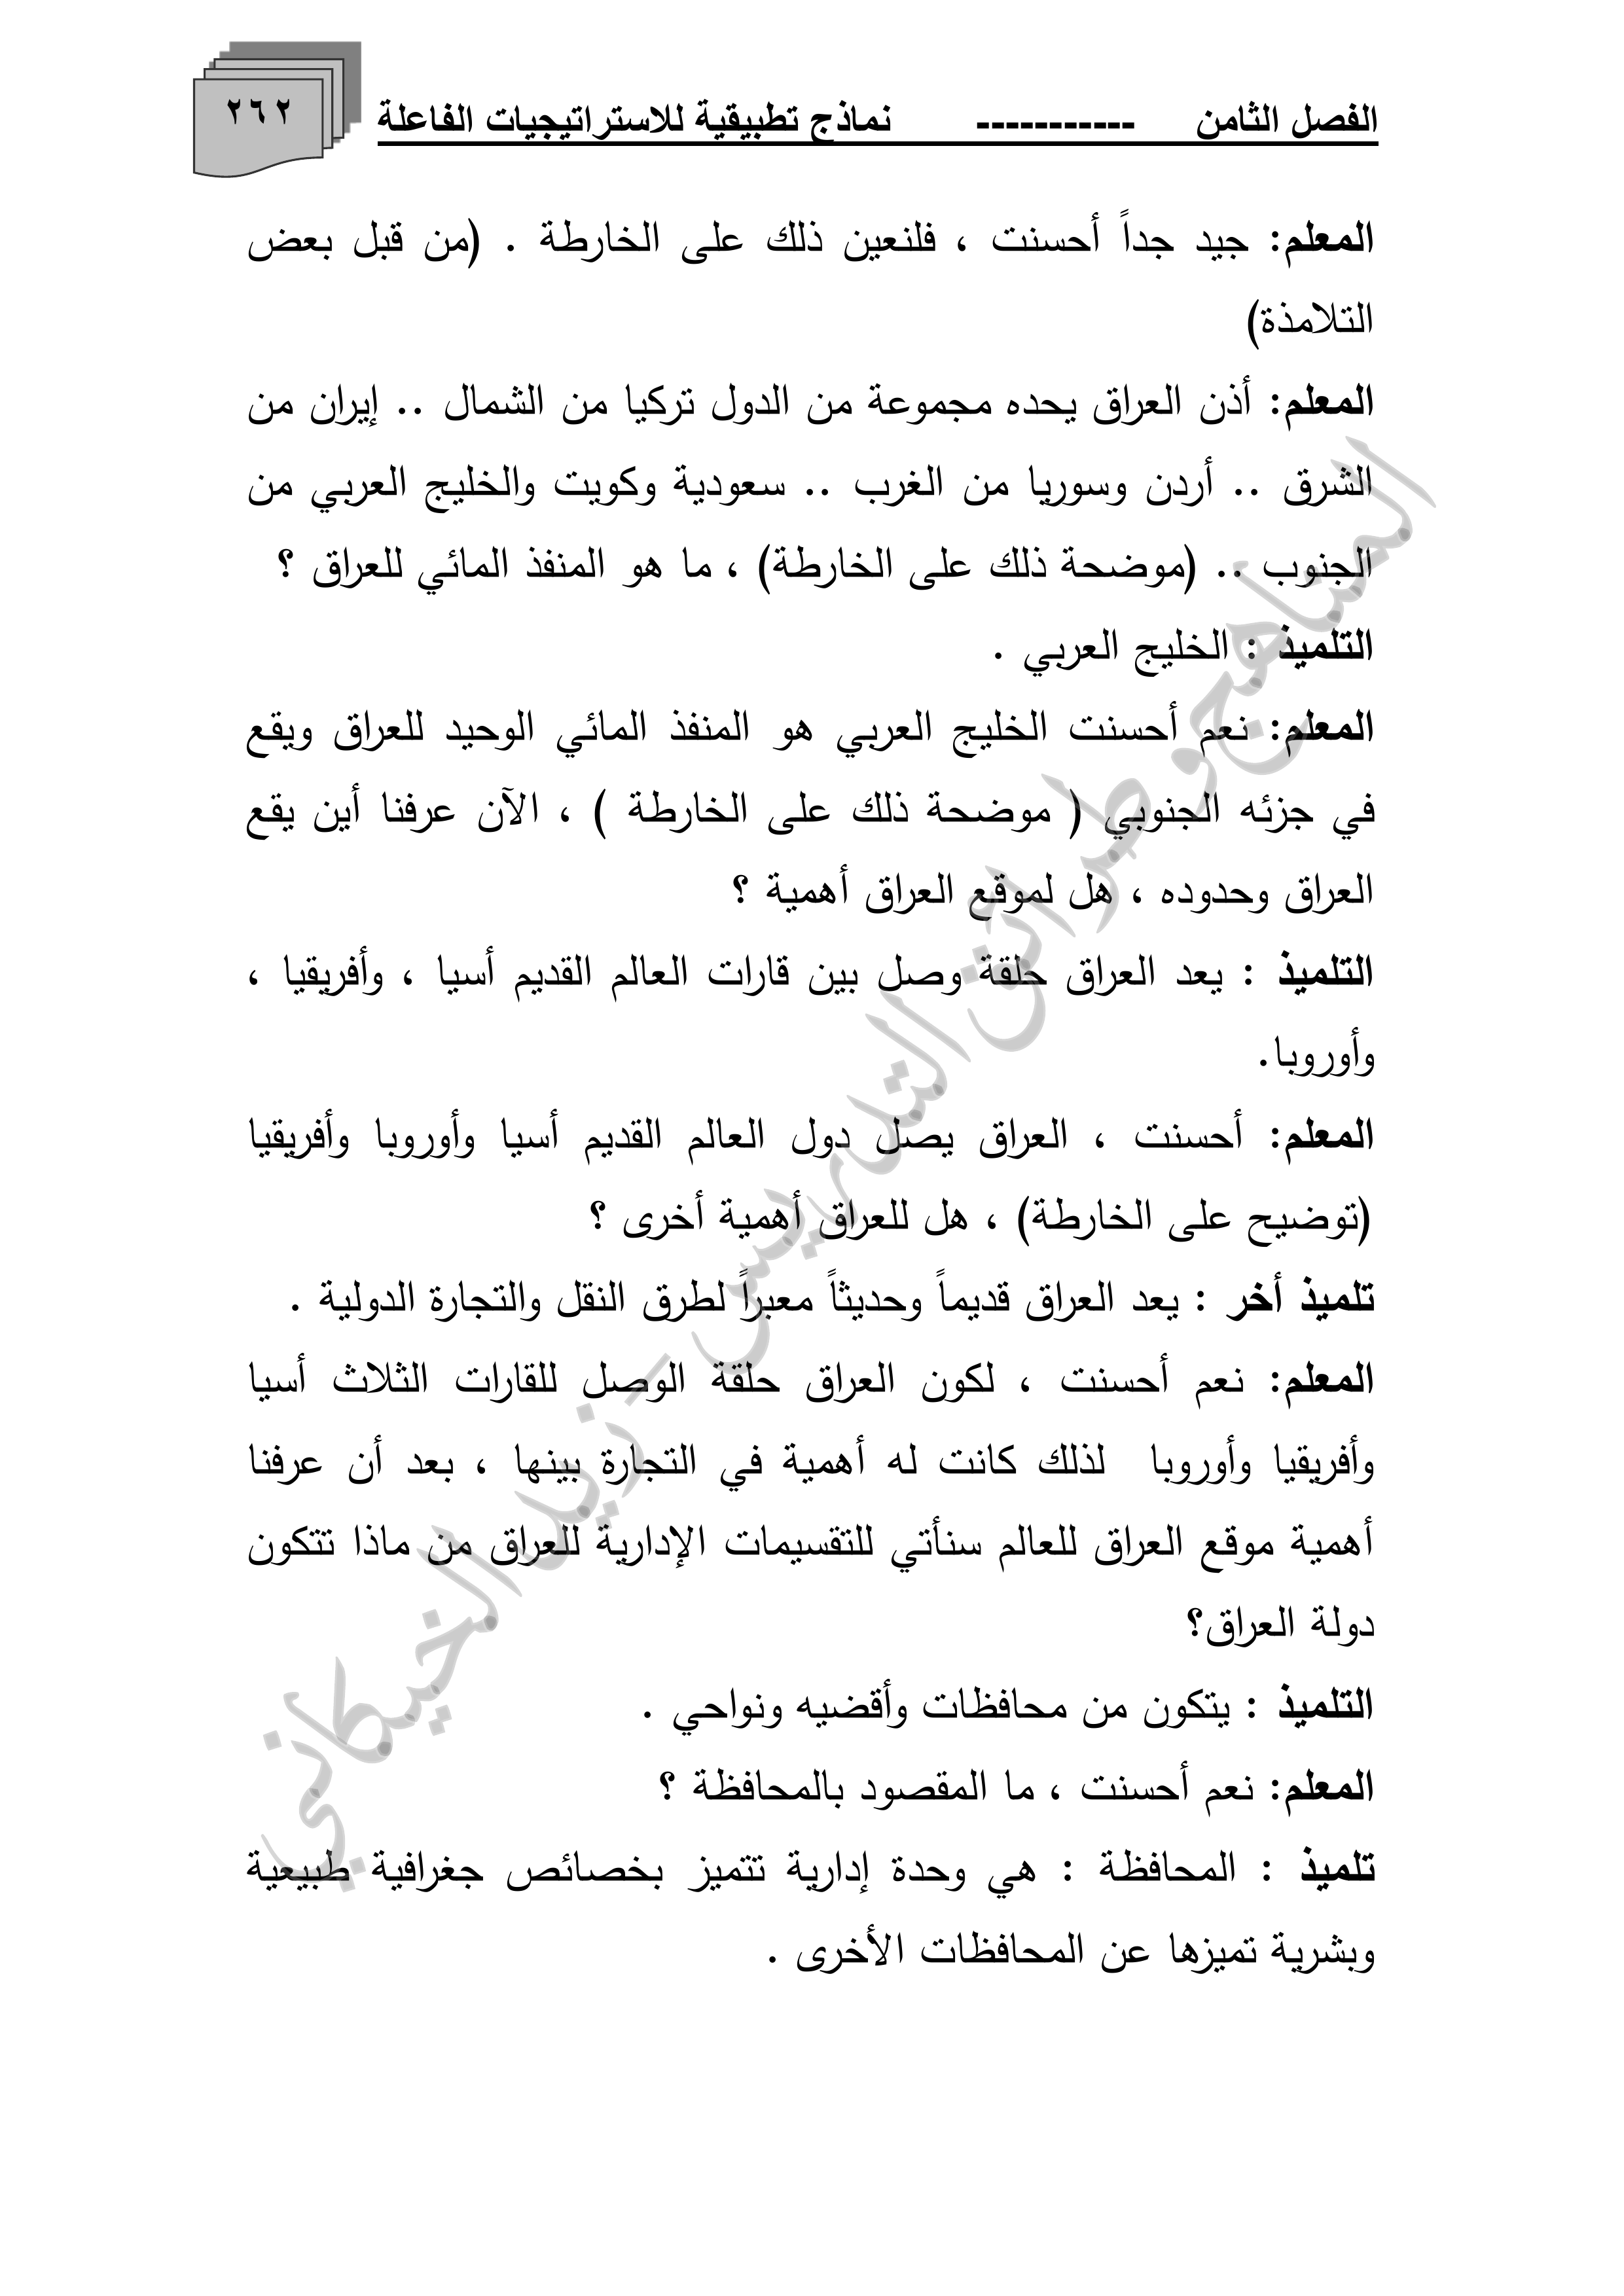 الفصل الثامن ----------- نماذج تطبيقية للاستراتيجيات الفاعلة
٢٦٢
المعلم: جيد جداً أحسنت ، فلنعين ذلك على الخارطة . (من قبل بعض
التلامذة)
المعلم: أذن العراق يحده مجموعة من الدول تركيا من الشمال .. إيران من
الشرق .. أردن وسوريا من الغرب .. سعودية وكويت والخليج العربي من
الجنوب .. (موضحة ذلك على الخارطة) ، ما هو المنفذ المائي للعراق ؟
التلميذ : الخليج العربي .
المعلم: نعم أحسنت الخليج العربي هو المنفذ المائي الوحيد للعراق ويقع
في جزئه الجنوبي ( موضحة ذلك على الخارطة ) ، الآن عرفنا أين يقع
العراق وحدوده ، هل لموقع العراق أهمية ؟
التلميذ : يعد العراق حلقة وصل بين قارات العالم القديم أسيا ، وأفريقيا ،
وأوروبا.
المعلم: أحسنت ، العراق يصل دول العالم القديم أسيا وأوروبا وأفريقيا
(توضيح على الخارطة) ، هل للعراق أهمية أخرى ؟
تلميذ أخر : يعد العراق قديماً وحديثاً معبراً لطرق النقل والتجارة الدولية .
المعلم: نعم أحسنت ، لكون العراق حلقة الوصل للقارات الثلاث أسيا
وأفريقيا وأوروبا لذلك كانت له أهمية في التجارة بينها ، بعد أن عرفنا
أهمية موقع العراق للعالم سنأتي للتقسيمات الإدارية للعراق من ماذا تتكون
دولة العراق؟
التلميذ : يتكون من محافظات وأقضيه ونواحي .
المعلم: نعم أحسنت ، ما المقصود بالمحافظة ؟
تلميذ : المحافظة : هي وحدة إدارية تتميز بخصائص جغرافية طبيعية
وبشرية تميزها عن المحافظات الأخرى .
المناهج وطرائق التدريس - زيد الخيكاني